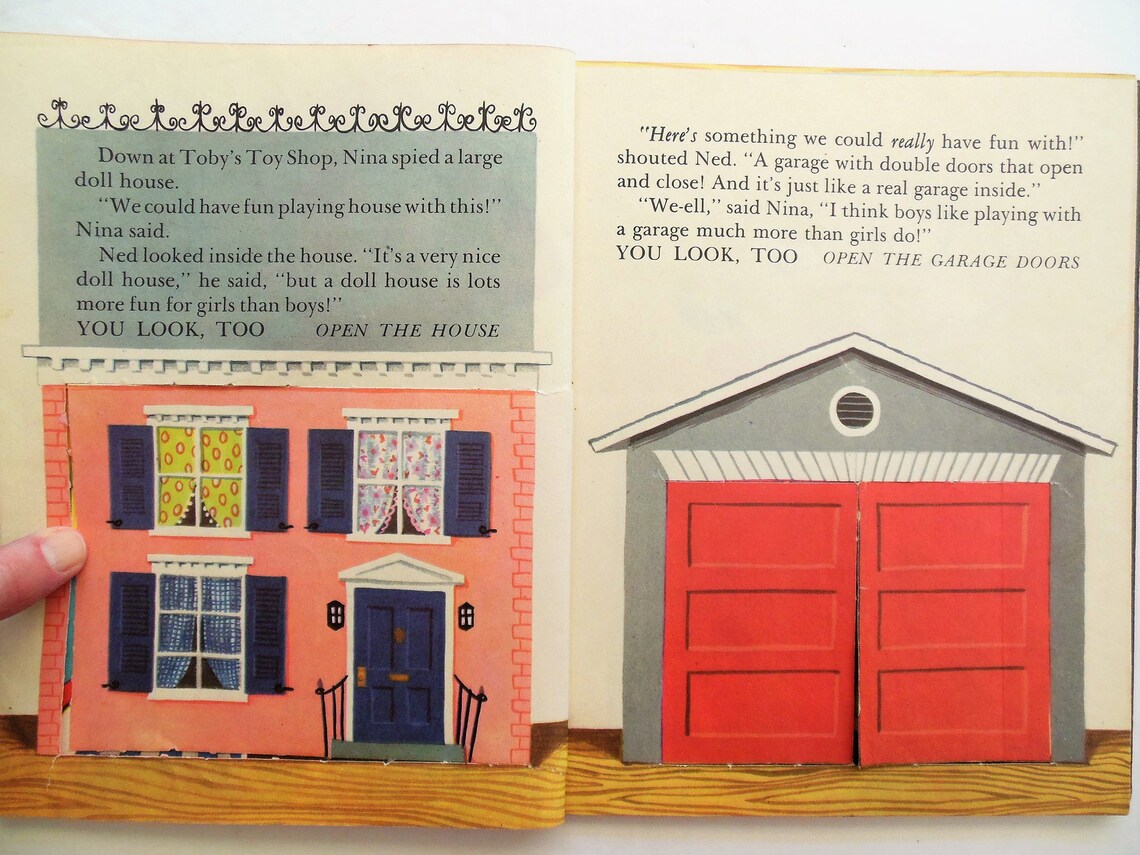 Down at Toby's Toy Shop, Nina spied a large
doll house.
"We could have fun playing house with this!"
Nina said.
Ned looked inside the house. "It's a very nice
doll house," he said, "but a doll house is lots
more fun for girls than boys!"
YOU LOOK, TOO OPEN THE HOUSE
"Here's something we could really have fun with!"
shouted Ned. "A garage with double doors that open
and close! And it's just like a real garage inside."
"We-ell," said Nina, "I think boys like playing with
a garage much more than girls do!"
YOU LOOK, TOO OPEN THE GARAGE DOORS